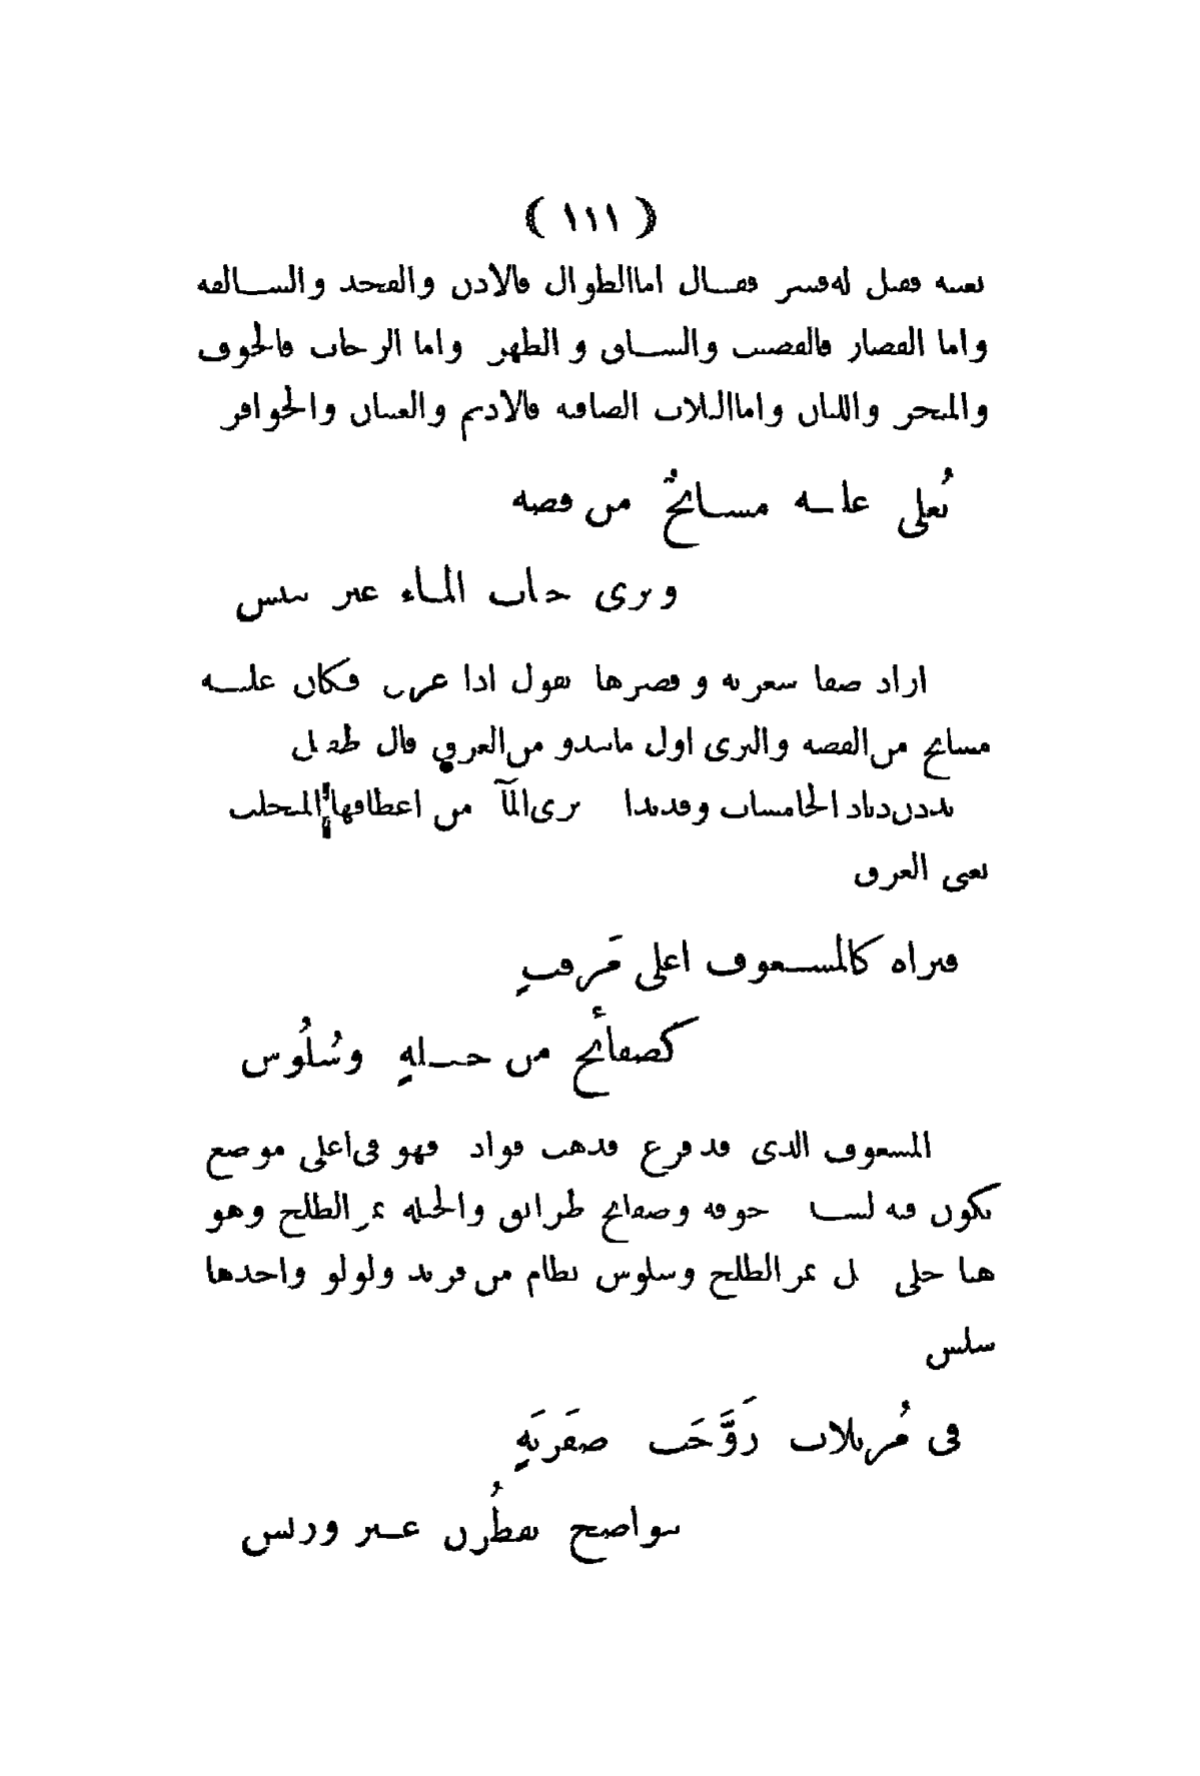 ( ١١١ )
بعينه فقيل له فسر فقال اما الطوال فالاذن والفخذ والسالفة
واما القصار فالقضيب والساق والظهر واما الرحاب فالجوف
والمنخر واللبان واما الثلاث الصافية فالاديم والعينان والحوافر
تُعلى عليه مسائحٌ من فضة
وثرى حباب الماء غير يبيس
اراد صفا شعرته وقصرها يقول اذا عرق فكان عليه
مسايح من الفضة والثرى اول ما يبدو من العرق قال طفيل
يذدن ذياد الخامسات وقد بدا ثرى المآ من اعطافها المتحلب
يعنى العرق
فتراه كالمشعوف اعلى مَرقبٍ
كصفائح من حبلةٍ وسُلُوس
المشعوف الذى قد فزع فذهب فواد فهو فى اعلى موضع
يكون فيه جوفه وصفايح طرائق والحبلة ثمر الطلح وهو
هنا حلى ثمر الطلح وسلوس نظام من فريد ولولو واحدها
سلس
فى مُربلات رَوَّحَت صفَرِيَةٍ
نواضح يقطُرن غير وريس